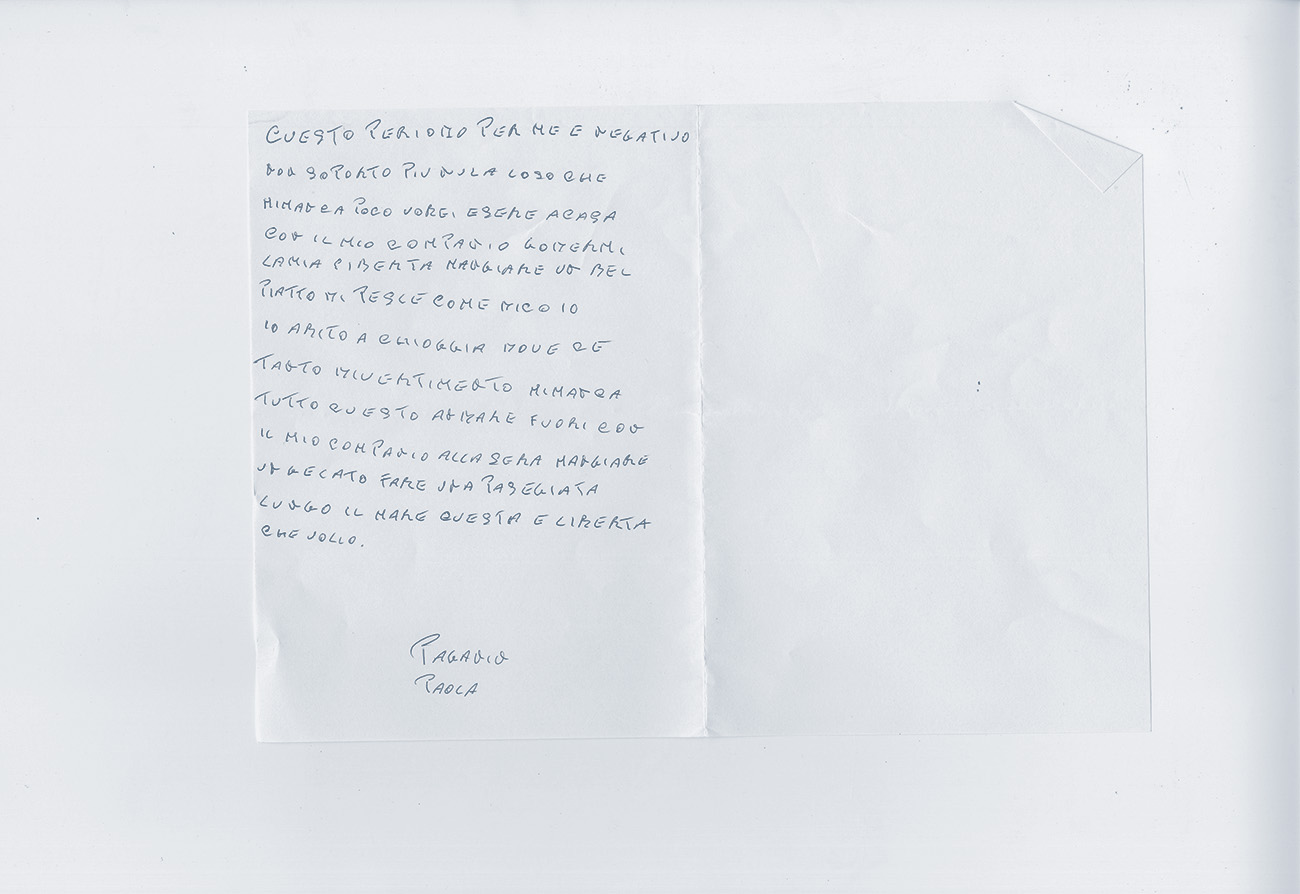 QUESTO PERIODO PER ME E NEGATIVO
NON SOPORTO PIU NULA COSO CHE
MIMANCA POCO VOREI ESERE ACASA
CON IL MIO COMPANIO GODERMI
LAMIA LIBERTA MANGIARE UN BEL
PIATTO DI PESCE COME DICO IO
IO ABITO A CHIOGGIA DOVE CE
TANTO DIVERTIMENTO MIMANCA
TUTTO QUESTO ANDARE FUORI CON
IL MIO COMPANIO ALLA SERA MANGIARE
UN GELATO FARE UNA PASEGIATA
LUNGO IL MARE QUESTA E LIBERTA
CHE VOLIO.
PAGANIO
PAOLA